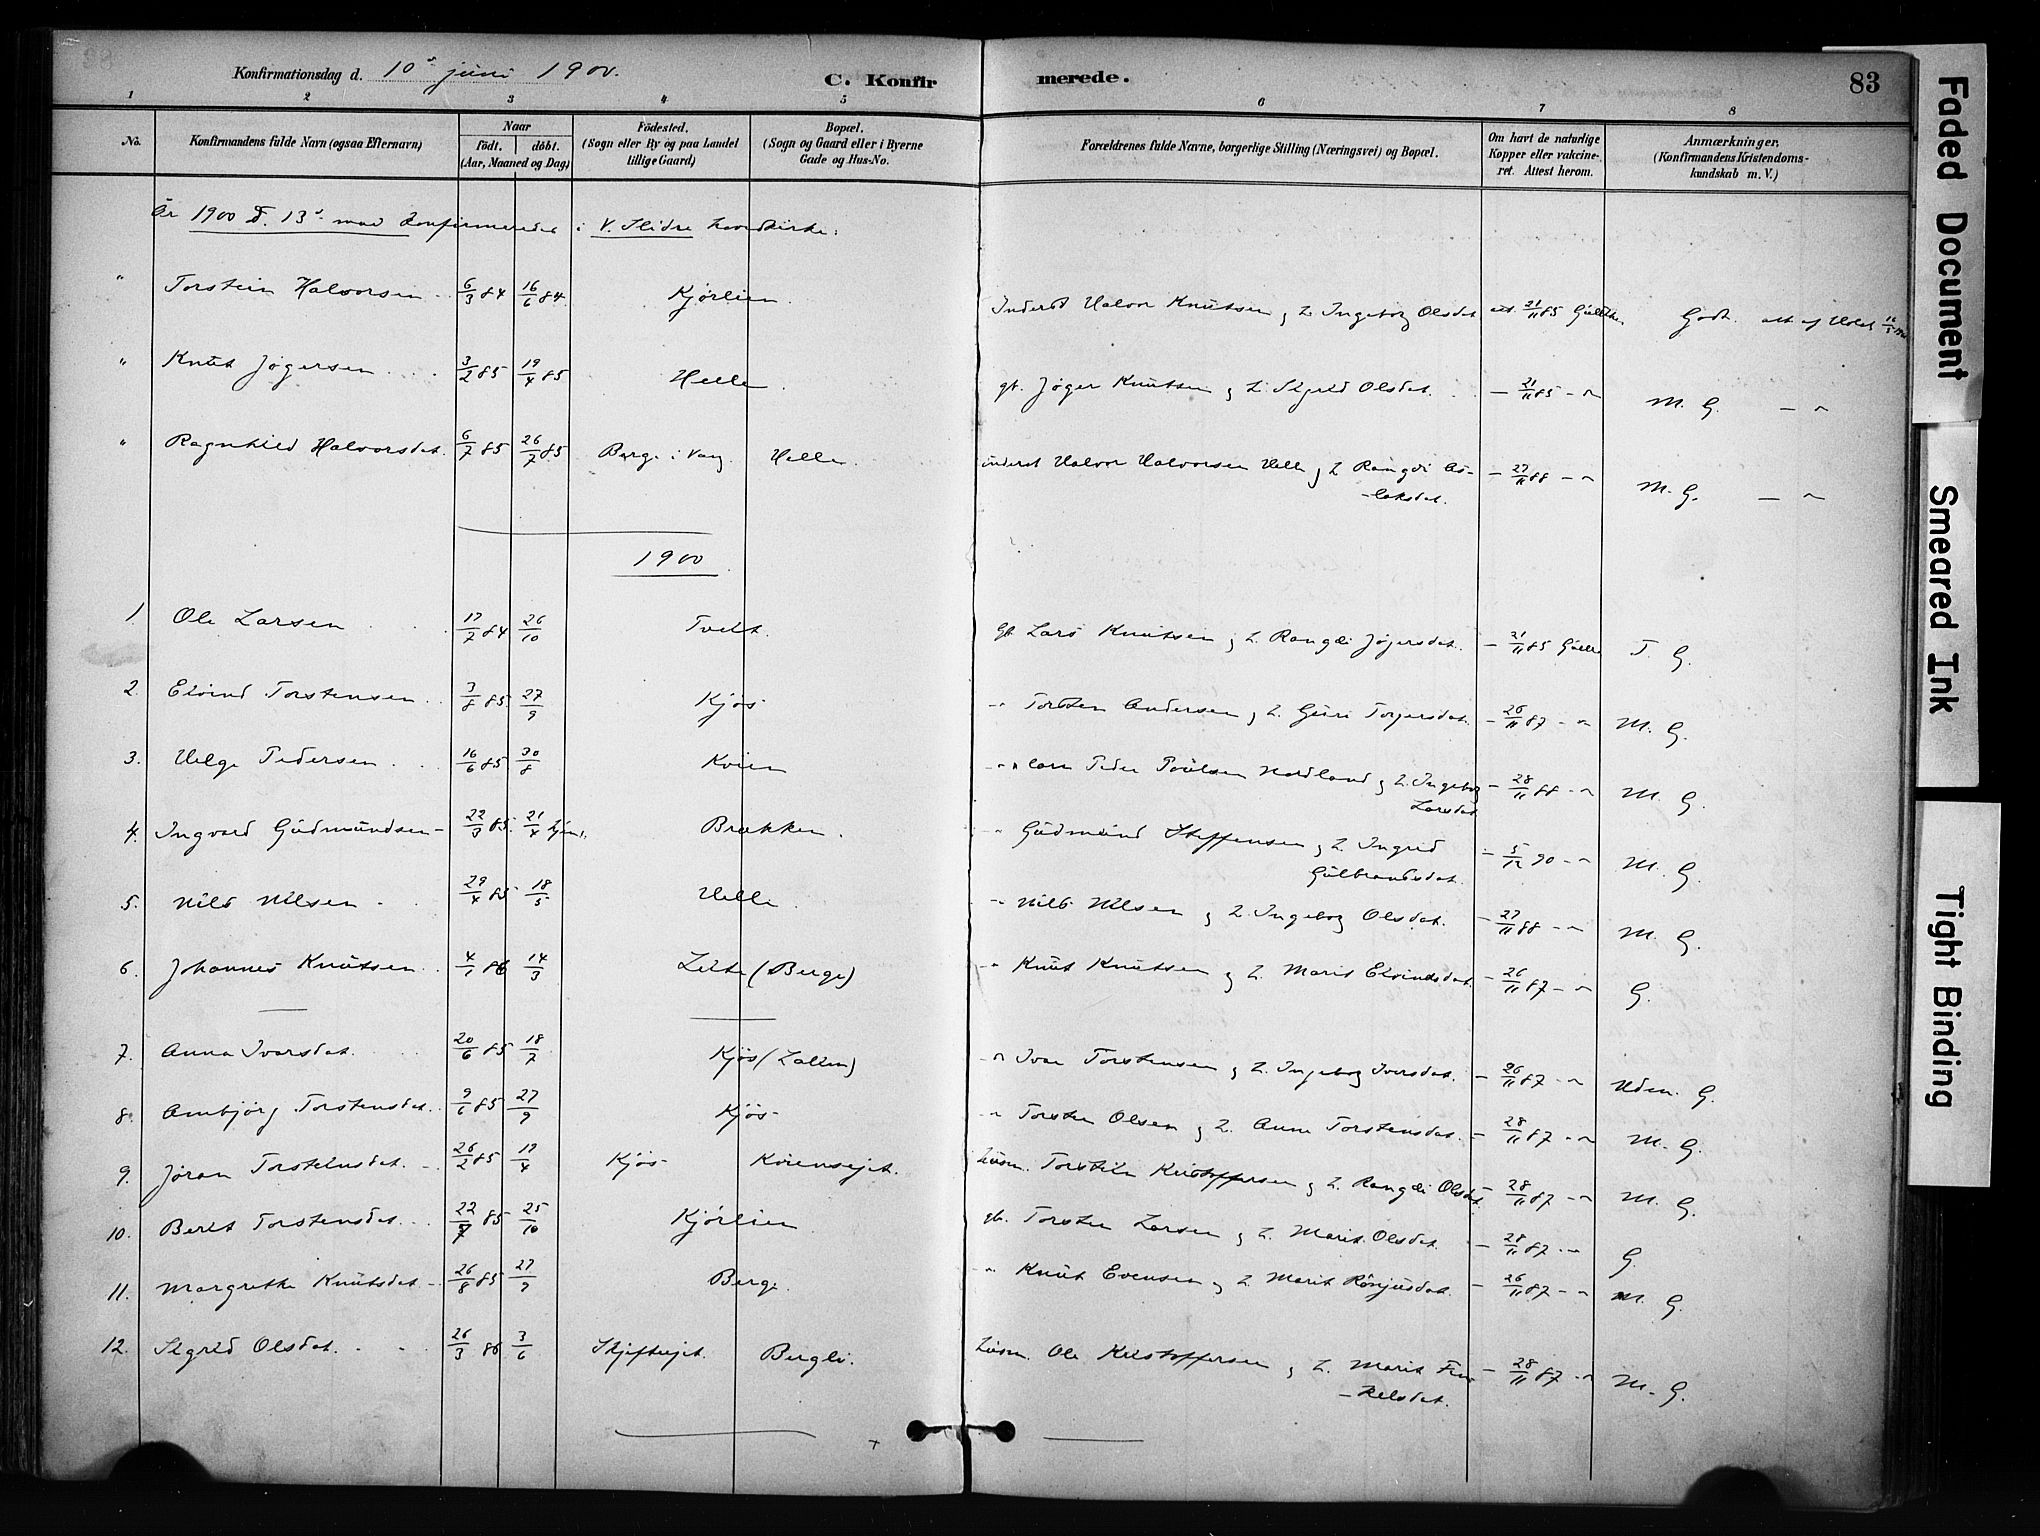 Konfirmationsdag d. 10de juni 1900.
C. Konfirmerede.
83
1 2 3 4 5 6 7 8
No.
Konfirmandens fulde Navn (ogsaa Efternavn)
Naar
födt. döbt.
(Aar, Maaned og Dag)
Födested.
(Sogn eller By og paa Landet
tillige Gaard)
Bopæl.
(Sogn og Gaard eller i Byerne
Gade og Hus-No.
Forældrenes fulde Navne, borgerlige Stilling (Næringsvei) og Bopæl.
Om havt de naturlige
Kopper eller vakcine-
ret. Attest herom.
Anmærkninger.
(Konfirmandens Kristendoms-
kundskab m. V.)
År 1900 d. 13de mai konfirmeredes i V. Slidre hovedkirke:
" Torstein Halvorsen 6/3 84 16/6 84 Kjørlien. Inderst Halvor Knutsen g h. Ingeborg Olsdat. att. 21/11 85 Godt. att af
" Knut Jøgersen 3/2 85 19/4 85 Helle. gb. Jøger Knutsen g h. Sigrid Olsdat. — 21/11 85 - " M. G. — "
" Ragnhild Halvorsdat. 6/7 85 26/7 85 Berge i Vang Helle. inderst Halvor Halvorsen Helle g h Rangdi As-
-laksdat. — 27/11 88 - " M. G. — "
1900
1 Ole Larsen 17/7 84 26/10 Tveit. gb. Lars Knutsen g h. Rangdi Jøgersdat. — 21/11 85 T. G.
2. Eivind Torstensen 3/8 85 27/9 Kjøs - " Torsten Andersen g h. Guri Torgersdat. — 26/11 87 - " M. G.
3. Helge Pedersen 16/6 85 30/8 Kvien - " Peder Paulsen Nordland g h. Ingeborg
Larsdat — 28/11 88 - " M. G.
4. Ingvard Gudmundsen 22/3 85. 21/4 hjem. Brækken. - " Gudmund Steffensen g h. Ingrid
Gulbrandsdat. — 5/12 90 - " M. G.
5. Nils Nilsen 29/4 85 18/5 Helle. - " Nils Nilsen g h. Ingeborg Olsdat. — 27/11 88 - " M. G.
6. Johannes Knutsen 4/1 86 14/3 (Berge) - " Knut Knutsen g h. Marit Eivindsdat. — 26/11 87 - " G.
7. Anna Ivarsdat. 20/6 85 18/7 Kjøs (Lallem) - " Ivar Torstensen g h. Ingeborg Iversdat. — 26/11 87 - " Uden. G.
8. Ambjørg Torstensdat. 9/6 85 27/9 Kjøs - " Torsten Olsen g h. Anne Torstensdat. — 28/11 87 - " M. G.
9. Jøran Torstensdat. 26/2 85 19/4 Kjøs Kvienseject. husm. Torstein Kristoffersen g h. Rangdi Olsdat — 28/11 87 - " M. G.
10. Berit Torstensdat. 22/9 85 25/10 Kjørlien gb. Torsten Larsen g h. Marit Olsdat. — 28/11 87 - " G.
11. Margrethe Knutsdat. 26/8 85 27/9 Berge. - " Knut Evensen g h. Marit Rönjusdat. — 26/11 87 - " M. G.
12. Sigrid Olsdat. 26/3 86 3/6 Skjefteeiet. Bergli. husm. Ole Kristoffersen g h. Marit
-kelsdat. — 28/11 87 - " M. G.
Faded Document
Smeared Ink
Tight Binding